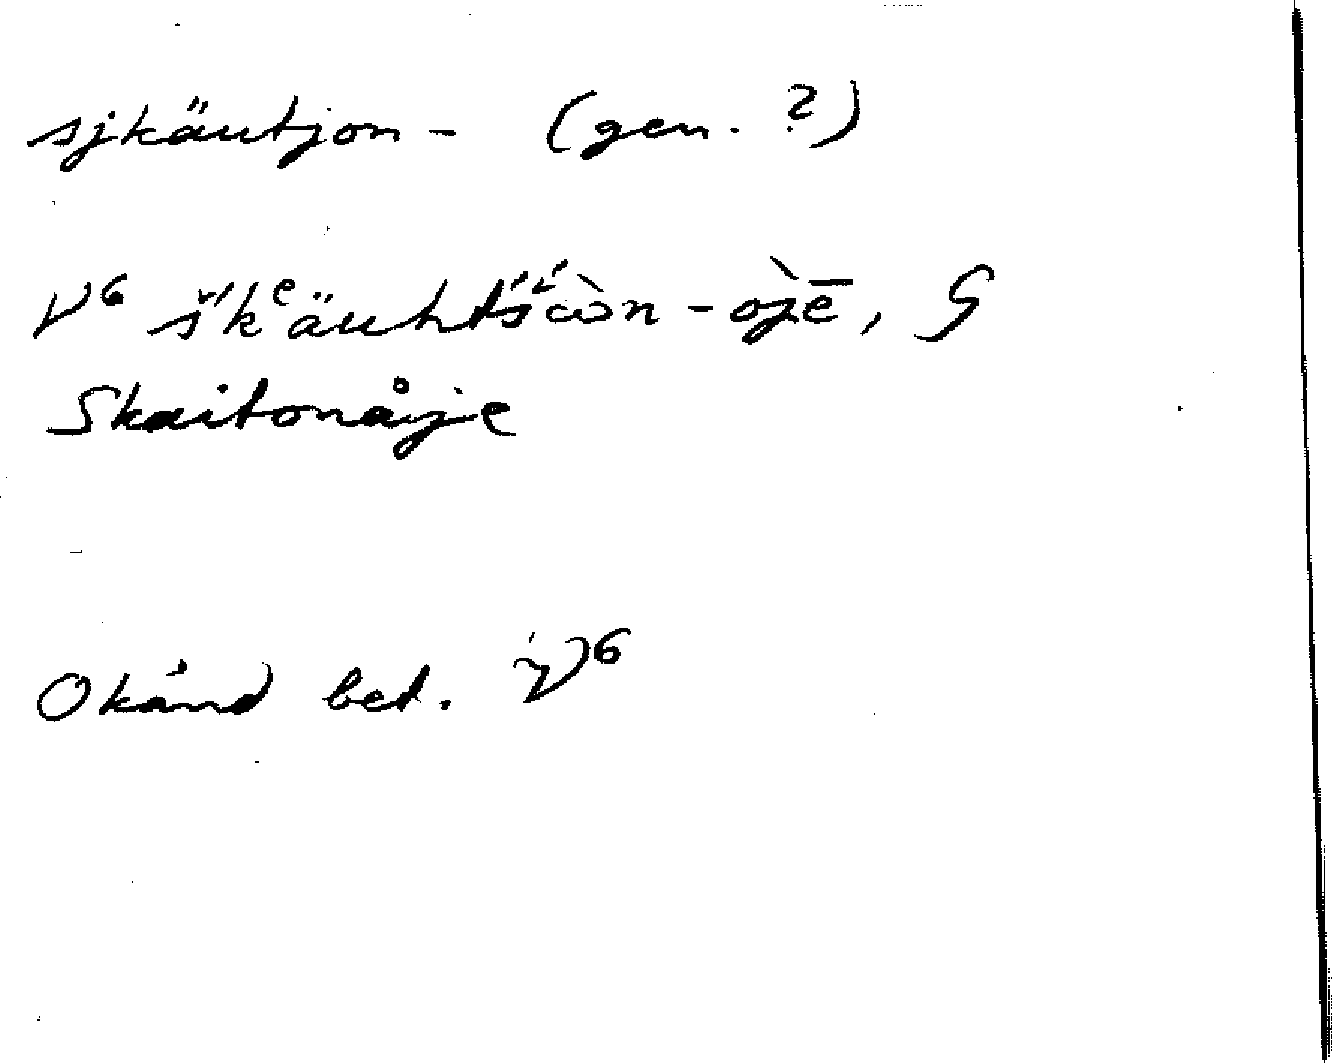 sjkäutjon- (gen. ?)
V⁶ š́kᵉäuhtś̌ọ̀n-ojē̱, G
Skaitonåive
Okänd bet. V⁶